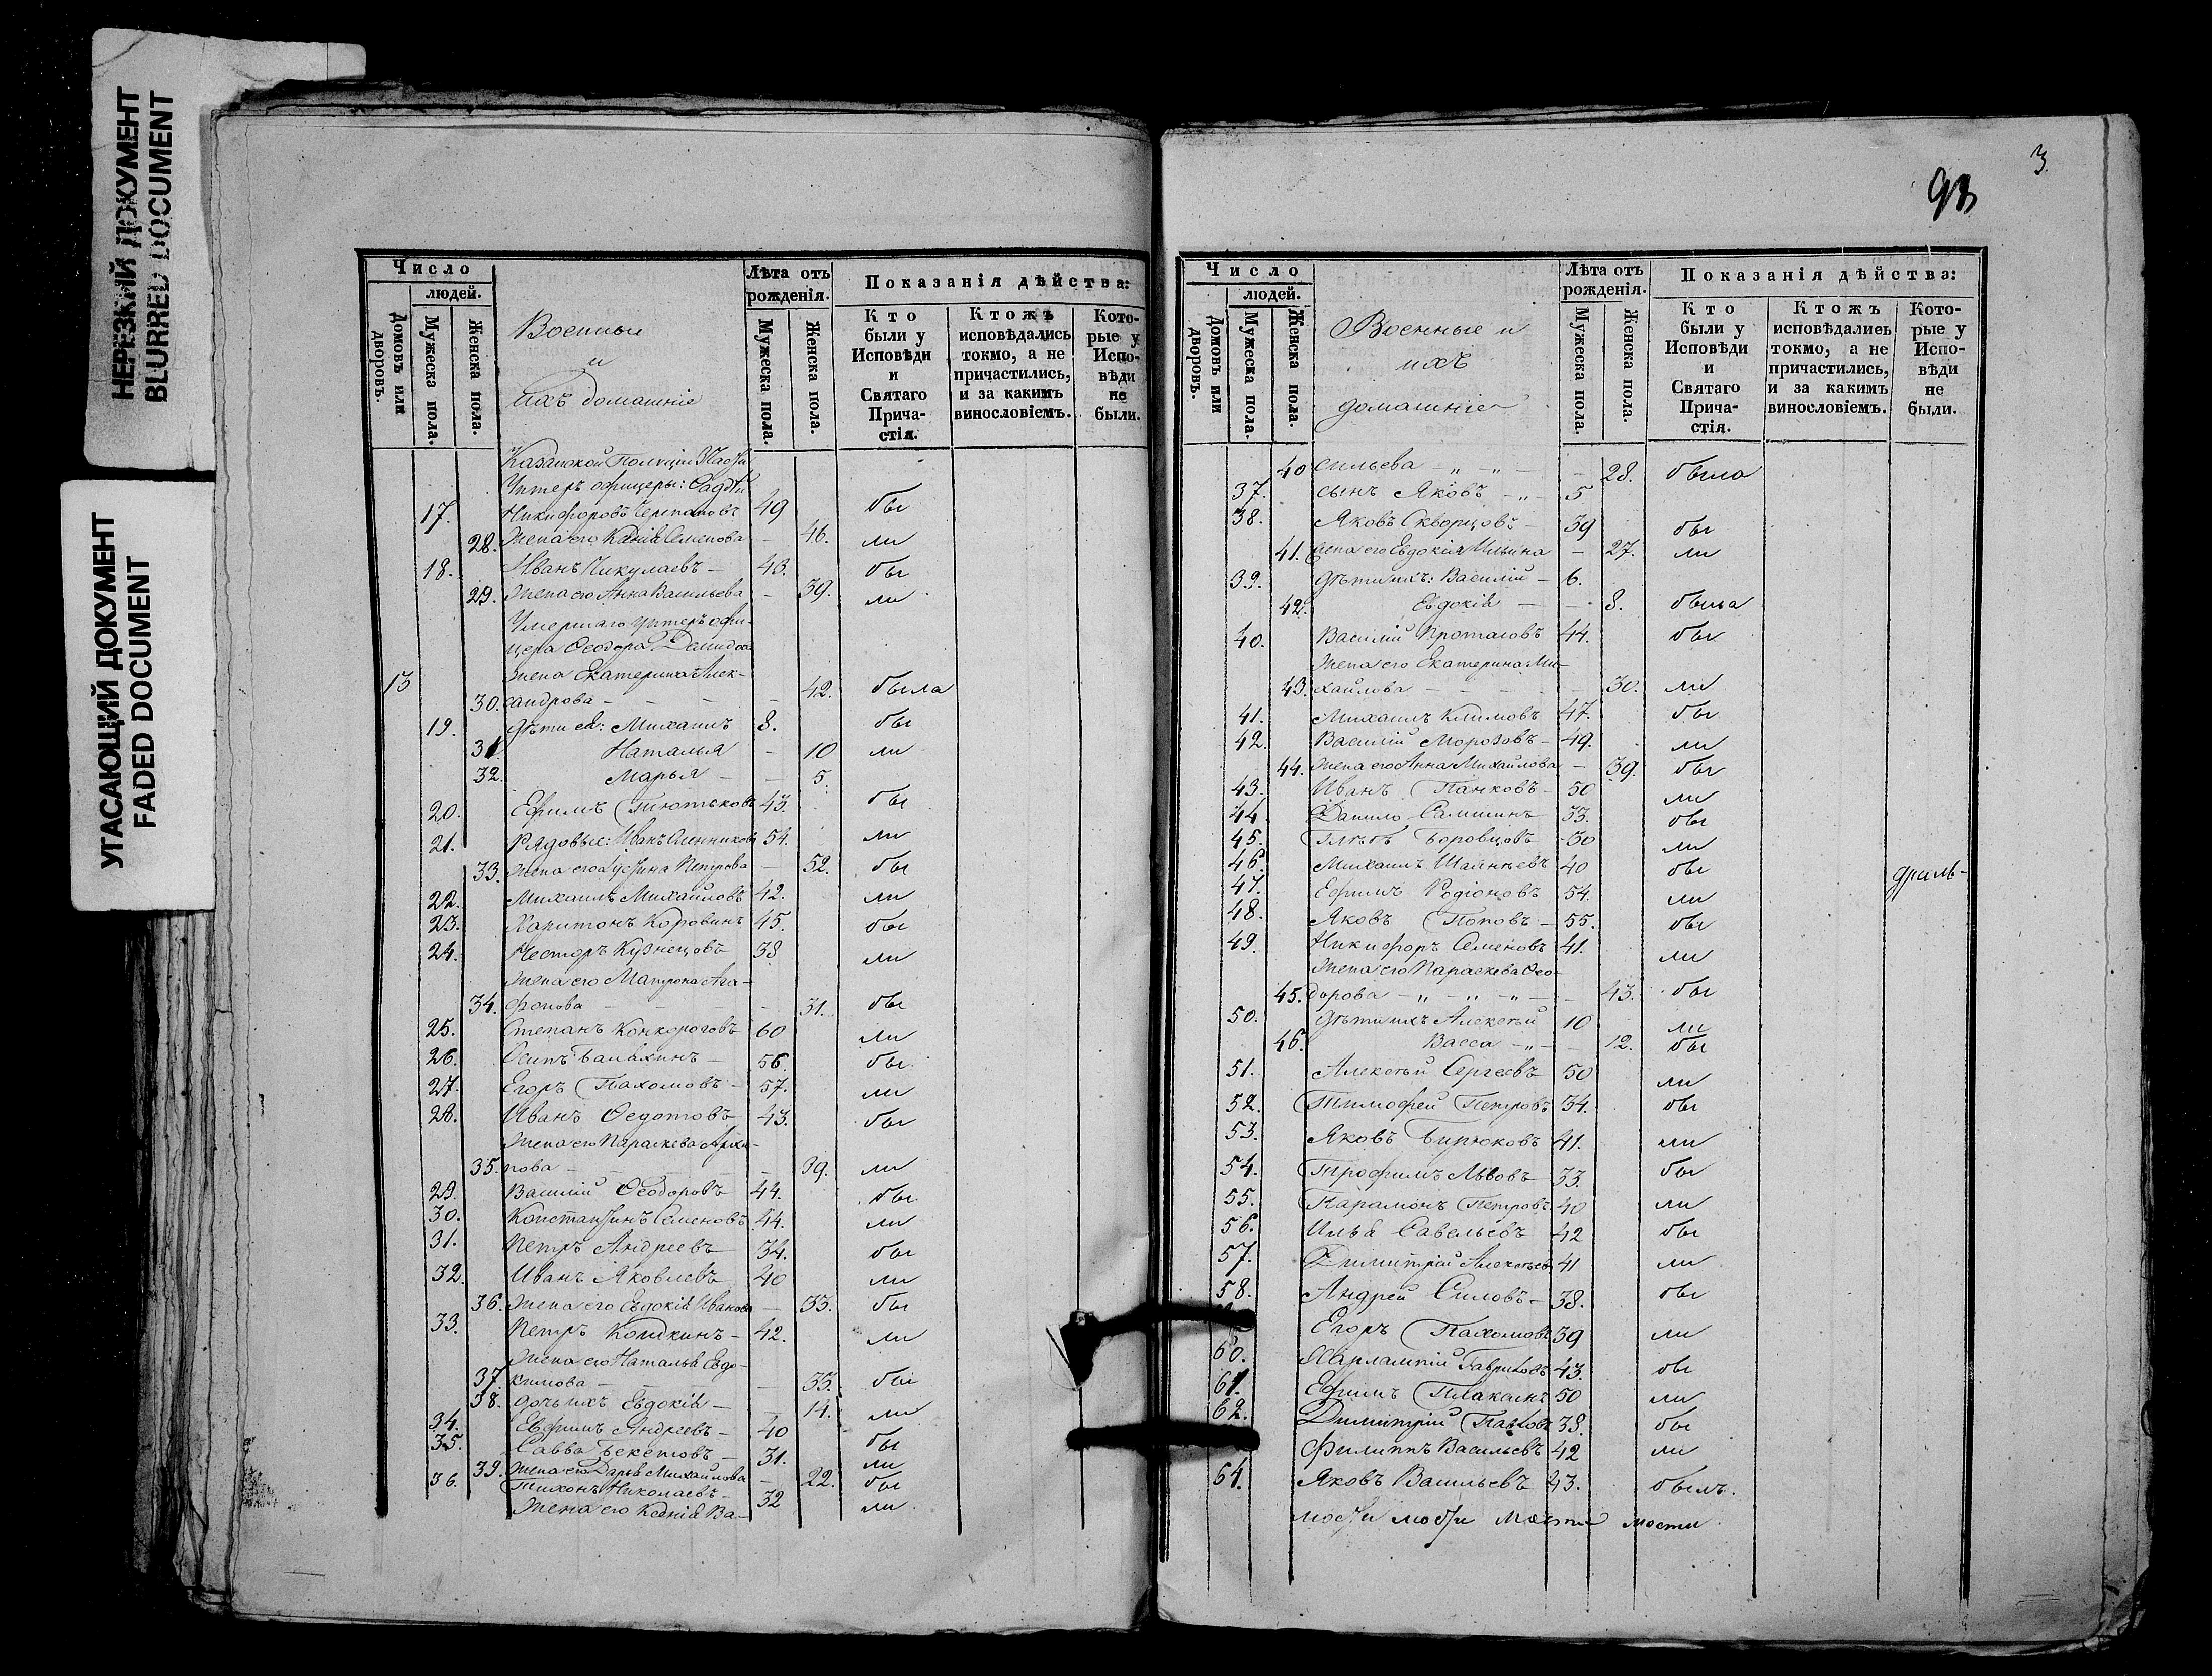 НЕРЕЗКИЙ ДОКУМЕНТ
BLURRED DOCUMENT
УГАСАЮЩИЙ ДОКУМЕНТ
FADED DOCUMENT
Число
людей.
Домовъ или дворовъ.
Мужеска пола.
Женска пола.
Военные
и
ихъ домашніе
Лѣта отъ рожденія.
Мужеска пола.
Женска пола.
Показанія дѣйства:
Кто были у Исповѣди и Святаго Причастія.
Ктожъ исповѣдались токмо, а не причастились, и за какимъ винословіемъ.
Которые у Исповѣди не были.
Казанской Полиціи
Унтеръ офицеры:
17. Никифоровъ 49 бы
28. Жена его Ксенія Семенова – 46. ли
18. Иванъ Никулаевъ – 43. бы
29. Жена его Анна Васильева – 39. ли
Умершаго унтеръ офи-
цера Ѳеодора Демидова
13 жена Екатерина Алек-
30. сандрова – – – – 42. была
19. дѣти ея: Михаилъ 8. бы
31. Наталья – 10 ли
32. Марья – – 5.
20. Ефимъ Тютьковъ 43. бы
21. Рядовые: Иванъ 54. ли
33. жена его Устина Петрова – 52. бы
22. Михаилъ Михайловъ 42. ли
23. Харитонъ Коровинъ 45. бы
24. Несторъ Кузнецовъ 38 ли
жена его Матрона Ага-
34. фонова – – – – 31. бы
25. Степанъ 60 ли
26. Осипъ Балахинъ – 56. бы
27. Егоръ Пахомовъ – 57. ли
28. Иванъ Ѳедотовъ 43. бы
жена его Параскева Архи-
35. пова – – – – 39. ли
29. Василій Ѳеодоровъ 44. бы
30. Константинъ Семеновъ 44. ли
31. Петръ Андреевъ 34. бы
32. Иванъ Яковлевъ 40 ли
36. жена его Евдокія Иванова – 33. бы
33. Петръ Кошкинъ – 42. ли
жена его Наталья Евдо-
37. кимова – – – – 33. бы
38. дочь ихъ Евдокія – – 14. ли
34. Евфимъ Андреевъ – 40 бы
35. Савва Бекетовъ – 31. ли
39. жена его Дарья Михайлова – 22. бы
36. Тихонъ Николаевъ – 32 ли
жена его Ксенія Ва-
3.
93
Число
людей.
Домовъ или дворовъ.
Мужеска пола.
Женска пола.
Военные и
ихъ
домашніе
Лѣта отъ рожденія.
Мужеска пола.
Женска пола.
Показанія дѣйства:
Кто были у Исповѣди и Святаго Причастія.
Ктожъ исповѣдались токмо, а не причастились, и за какимъ винословіемъ.
Которые у Исповѣди не были.
40 сильева – „ – „ – – 28. была
37. сынъ Яковъ – „ – 5
38. Яковъ Скворцовъ – 39 бы
41. жена его Евдокія Ильина – 27. ли
39. дѣти ихъ: Василій – 6.
42. Евдокія – – 8. была
40. Василій Протасовъ 44. бы
жена его Екатерина Ми-
43. хайлова – – – – 30. ли
41. Михаилъ Климовъ 47. бы
42. Василій Морозовъ – 49. ли
44. жена его Анна Михайлова – 39. бы
43. Иванъ Панковъ – 50 ли
44. Данило 33. бы
45. Глѣбъ Боровцовъ 30 ли
46. Михаилъ 40 бы
47. Ефимъ Родіоновъ 54. ли
48. Яковъ Поповъ – 55. бы
49. Никифоръ Семеновъ 41. ли
жена его Параскева Ѳео-
45. дорова – „ – „ – „ – – 43. бы
50. дѣти ихъ Алексѣй 10 ли
46. Васса – „ – – 12. бы
51. Алексѣй Сергеевъ 50 ли
52. Тимофей Петровъ 34. бы
53. Яковъ Бирюковъ 41. ли
54. Трофимъ Львовъ 33. бы
55. Парамонъ Петровъ 40 ли
56. Илья Савельевъ 42 бы
57. Димитрій Алексѣевъ 41 ли
58. Андрей Силовъ – 38. бы
Егоръ Пахомовъ 39 ли
60. Харлампій Гавриловъ 43. бы
61. Ефимъ 50 ли
62. Димитрій Павловъ 38. бы
Филиппъ Васильевъ 42 ли
64. Яковъ Васильевъ 43. былъ.
мости